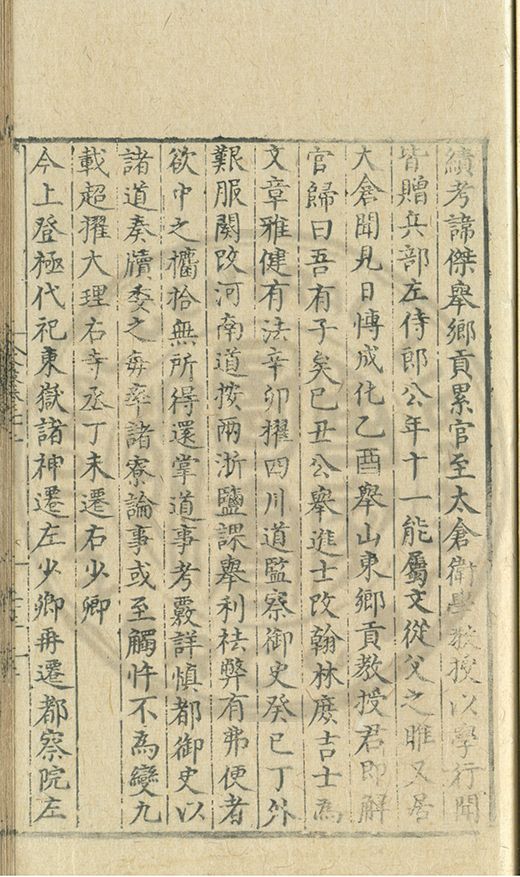 績考諱傑舉鄉貢累官至太倉衛學教授以學行聞
皆贈兵部左侍郎公年十一能屬文從父之睢又居
大倉聞見日慱成化乙酉舉山東鄉貢教授君即解
官歸曰吾有子矣己丑公舉進士改翰林庶吉士為
文章雅健有法辛卯擢四川道監察御史癸巳丁外
艱服闋改河南道按兩浙鹽課舉利祛弊有弗便者
欲中之攟拾無所得還掌道事考覈詳慎都御史以
諸道奏牘委之每率諸寮論事或至觸忤不為變九
載超擢大理右寺丞丁未遷右少卿
今上登極代祀東嶽諸神遷左少卿再遷都察院左